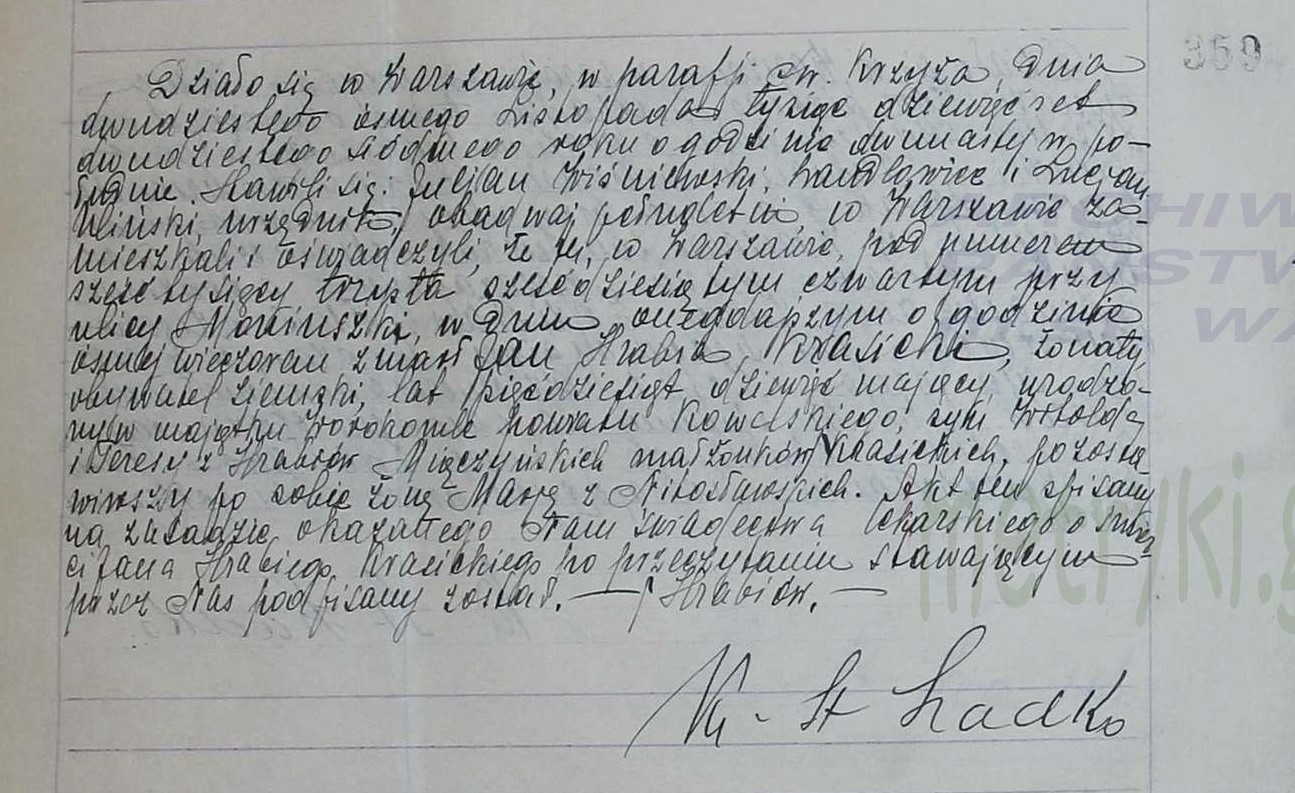 359
Działo się w Warszawie, w parafji Św. Krzyża, dnia
dwudziestego ósmego Listopada tysiąc dziewięćset
dwudziestego siódmego roku o godzinie dwunastej w po-
łudnie. Stawili się: Juljan Wiśniewski, handlowiec i Lucjan
Uliński, urzędnik, obadwaj pełnoletni w Warszawie za-
mieszkali i oświadczyli, że tu, w Warszawie, pod numerem
sześć tysięcy trzysta sześćdziesiątym czwartym przy
ulicy Moniuszki, w dniu onegdajszym o godzinie
ósmej wieczorem zmarł Jan Hrabia Krasicki, żonaty,
obywatel ziemski, lat pięćdziesiąt dziewięć mający, urodzo-
ny w majątku powiatu Kowelskiego, syn Witolda
i Teresy z Hrabiów Miączyńskich małżonków Krasickich, pozosta-
wiwszy po sobie żonę Marję z Nitosławskich. Akt ten spisany
na zasadzie okazałego Nam świadectwa lekarskiego o śmier-
ci Jana Hrabiego Krasickiego po przeczytaniu stawającym
przez Nas podpisany został. — Hrabiów. —
Ks. St Ladko
ARCHIW
PAŃSTW
W WA
metryki.g